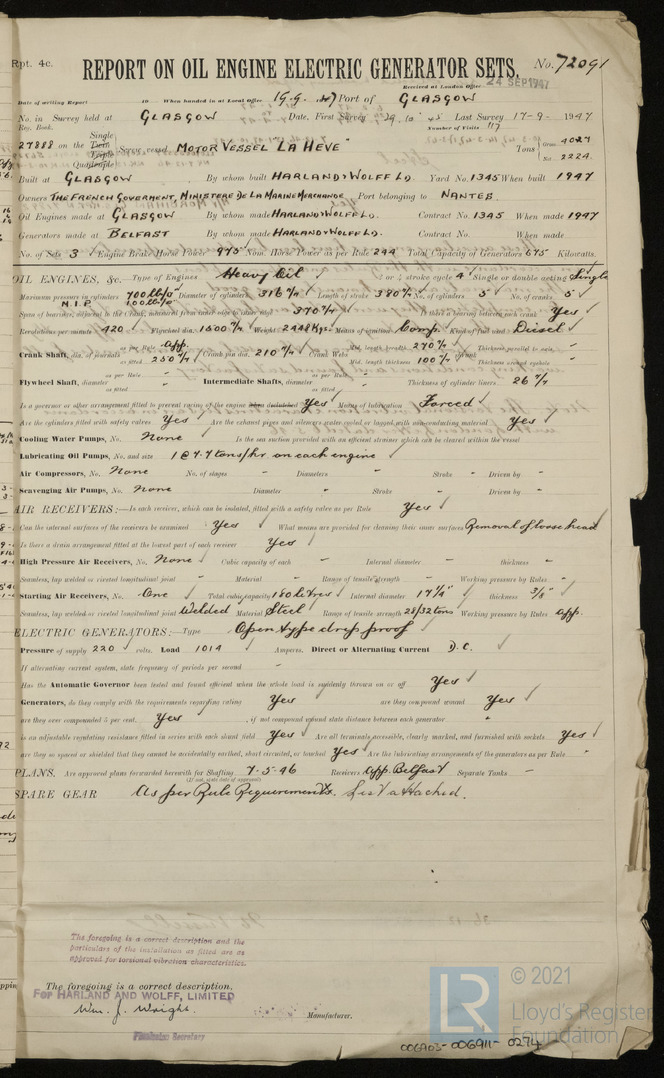 Rpt. 4c.
REPORT ON OIL ENGINE ELECTRIC GENERATOR SETS.
No. 72091
Received at London Office 24 SEP 1947
Date of writing Report 19 When handed in at Local Office 19.9.47 Port of GLASGOW
No. in Survey held at GLASGOW Date, First Survey 29.10.45 Last Survey 17-9-1947
Reg. Book. Number of Visits 117
27888 on the Single Twin Triple Quadruple Screw vessel MOTOR VESSEL LA HEVE Tons Gross 4027 Net 2224
Built at GLASGOW By whom built HARLAND & WOLFF LD. Yard No. 1345 When built 1947
Owners THE FRENCH GOVERMENT, MINISTERE DE LA MARINE MARCHANDE Port belonging to NANTES
Oil Engines made at GLASGOW By whom made HARLAND & WOLFF LD. Contract No. 1345 When made 1947
Generators made at BELFAST By whom made HARLAND & WOLFF LD. Contract No. When made
No. of Sets 3 Engine Brake Horse Power 975 Nom. Horse Power as per Rule 244 Total Capacity of Generators 675 Kilowatts.
OIL ENGINES, &c.—Type of Engines Heavy Oil 2 or 4 stroke cycle 4 Single or double acting Single
Maximum pressure in cylinders 700 lb/□" Diameter of cylinders 316 m/m Length of stroke 380 m/m No. of cylinders 5 No. of cranks 5
M.I.P. 100 lb/□"
Span of bearings, adjacent to the Crank, measured from inner edge to inner edge 370 m/m Is there a bearing between each crank Yes
Revolutions per minute 420 Flywheel dia. 1500 m/m Weight 2448 Kgs. Means of ignition Comp. Kind of fuel used Diesel
Crank Shaft, dia. of journals as per Rule App. as fitted 250 m/m Crank pin dia. 210 m/m Crank Webs Mid. length breadth 270 m/m Mid. length thickness 100 m/m Thickness parallel to axis Thickness around eyehole
Flywheel Shaft, diameter as per Rule as fitted Intermediate Shafts, diameter as per Rule as fitted Thickness of cylinder liners 26 m/m
Is a governor or other arrangement fitted to prevent racing of the engine when declutched Yes Means of lubrication Forced
Are the cylinders fitted with safety valves Yes Are the exhaust pipes and silencers water cooled or lagged with non-conducting material Yes
Cooling Water Pumps, No. None Is the sea suction provided with an efficient strainer which can be cleared within the vessel
Lubricating Oil Pumps, No. and size 1 @ 7.7 tons/hr. on each engine
Air Compressors, No. None No. of stages Diameters Stroke Driven by
Scavenging Air Pumps, No. None Diameter Stroke Driven by
AIR RECEIVERS:—Is each receiver, which can be isolated, fitted with a safety valve as per Rule Yes
Can the internal surfaces of the receivers be examined Yes What means are provided for cleaning their inner surfaces Removal of loose head
Is there a drain arrangement fitted at the lowest part of each receiver Yes
High Pressure Air Receivers, No. None Cubic capacity of each Internal diameter thickness
Seamless, lap welded or riveted longitudinal joint Material Range of tensile strength Working pressure by Rules
Starting Air Receivers, No. One Total cubic capacity 180 litres Internal diameter 17¼" thickness 3/8"
Seamless, lap welded or riveted longitudinal joint Welded Material Steel Range of tensile strength 28/32 tons Working pressure by Rules App.
ELECTRIC GENERATORS:—Type Open type drip proof
Pressure of supply 220 volts. Load 1014 Amperes. Direct or Alternating Current D.C.
If alternating current system, state frequency of periods per second
Has the Automatic Governor been tested and found efficient when the whole load is suddenly thrown on or off Yes
Generators, do they comply with the requirements regarding rating Yes are they compound wound Yes
are they over compounded 5 per cent. Yes, if not compound wound state distance between each generator
is an adjustable regulating resistance fitted in series with each shunt field Yes Are all terminals accessible, clearly marked, and furnished with sockets Yes
are they so spaced or shielded that they cannot be accidentally earthed, short circuited, or touched Yes Are the lubricating arrangements of the generators as per Rule
PLANS. Are approved plans forwarded herewith for Shafting 7-5-46 Receivers App. Belfast Separate Tanks
(If not, state date of approval)
SPARE GEAR As per Rule Requirements. List attached.
The foregoing is a correct description and the
particulars of the installation as fitted are as
approved for torsional vibration characteristics.
The foregoing is a correct description.
FOR HARLAND AND WOLFF, LIMITED
Wm. J. Wright. Manufacturer.
Secretary
LR © 2021
Lloyd's Register
Foundation
006903-006911-0274